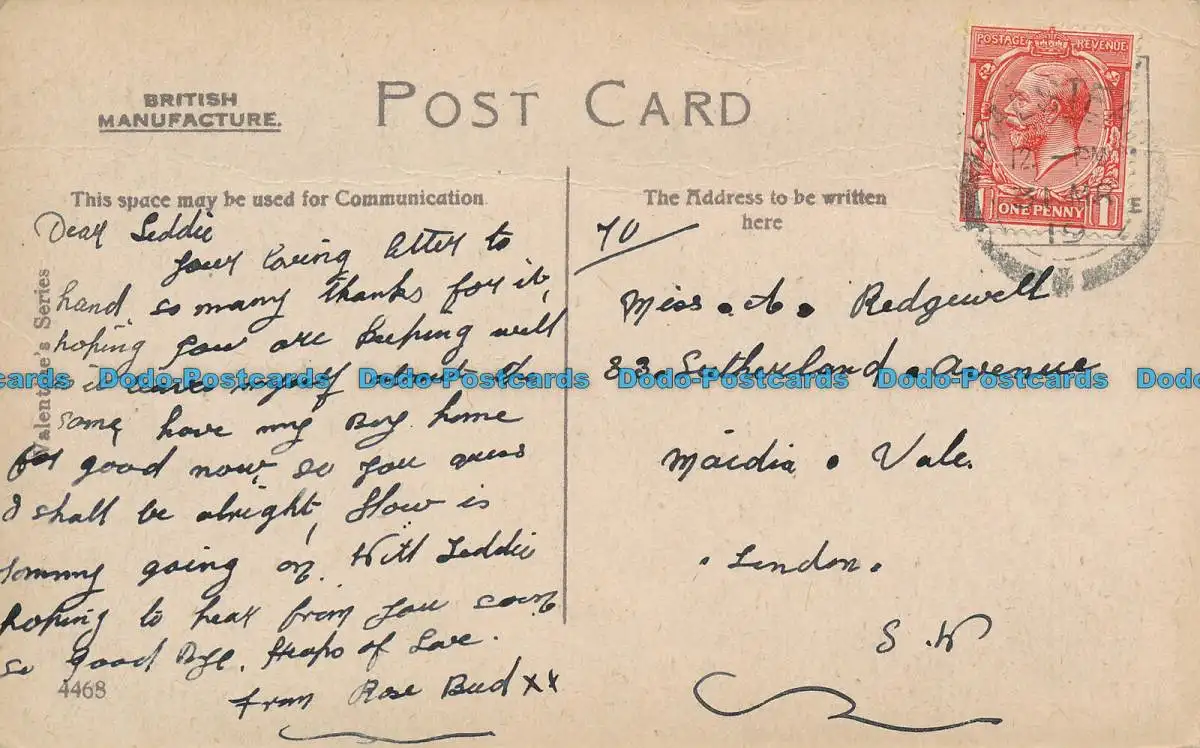 POST CARD
BRITISH
MANUFACTURE.
POSTAGE REVENUE
ONE PENNY 1
12 - PM
31 MR
19
This space may be used for Communication
The Address to be written
here
Valentine's Series
Dear Leddie
Your loving letter to
hand, so many thanks for it,
hoping you are keeping well
myself about the
same, have my Boy home
for good now, so you
I shall be alright, How is
Tommy going on. Will Leddie
hoping to hear from you soon
so good Bye. Heaps of Love.
from Rose Bud xx
4468
TO
Miss. A. Redgewell
83. Sutherland. Avenue
Maidia. Vale.
. London.
S.W
Dodo-Postcards Dodo-Postcards Dodo-Postcards Dodo-Postcards